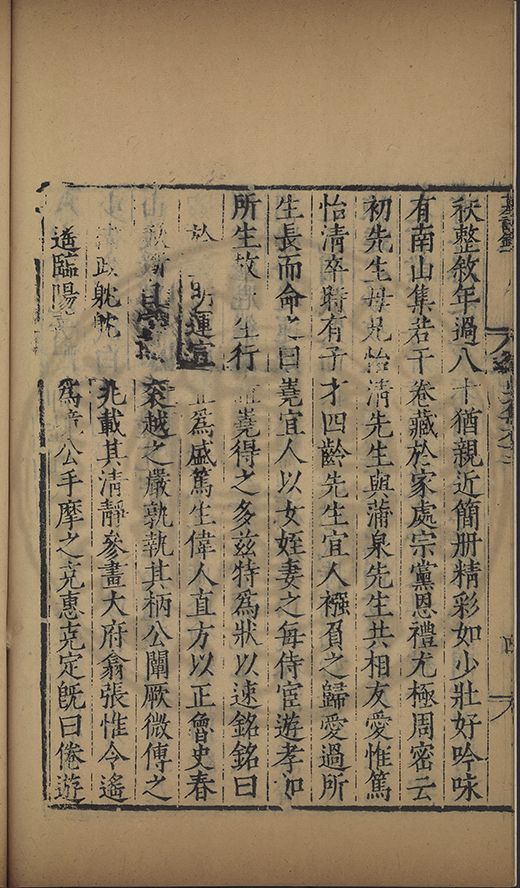 秩整敘年過八十猶親近簡冊精彩如少壯好吟咏
有南山集若干卷藏於家處宗黨恩禮尤極周密云
初先生母兄怡清先生與蒲泉先生共相友愛惟篤
怡清卒時有子才四齡先生宜人襁負之歸愛過所
生長而命之曰嶤宜人以女姪妻之每侍宦遊孝如
所生故 生行 嶤得之多茲特為狀以速銘銘曰
於 明運宣 為盛篤生偉人直方以正魯史春
秦越之嚴孰執其柄公闡厥微傳之
政躭 兆載其清靜參畫大府翕張惟令遙
遙臨陽 為 公手摩之克惠克定旣曰倦遊
四